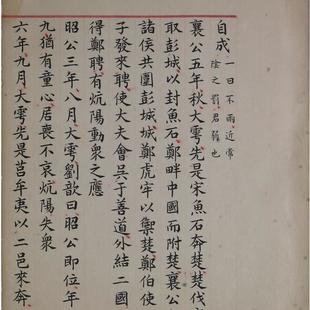 自成
一曰不雨近常
陰之罰君弱也
襄公五年秋大雩先是宋魚石奔楚楚伐
取彭城以封魚石鄭畔中國而附楚襄公
諸侯共圍彭城城鄭虎牢以禦楚鄭伯使
子發來聘使大夫會吳于善道外結二國
得鄭聘有炕陽動眾之應
昭公三年八月大雩劉歆曰昭公即位年
九猶有童心居喪不哀炕陽失眾
六年九月大雩先是莒牟夷以二邑來奔